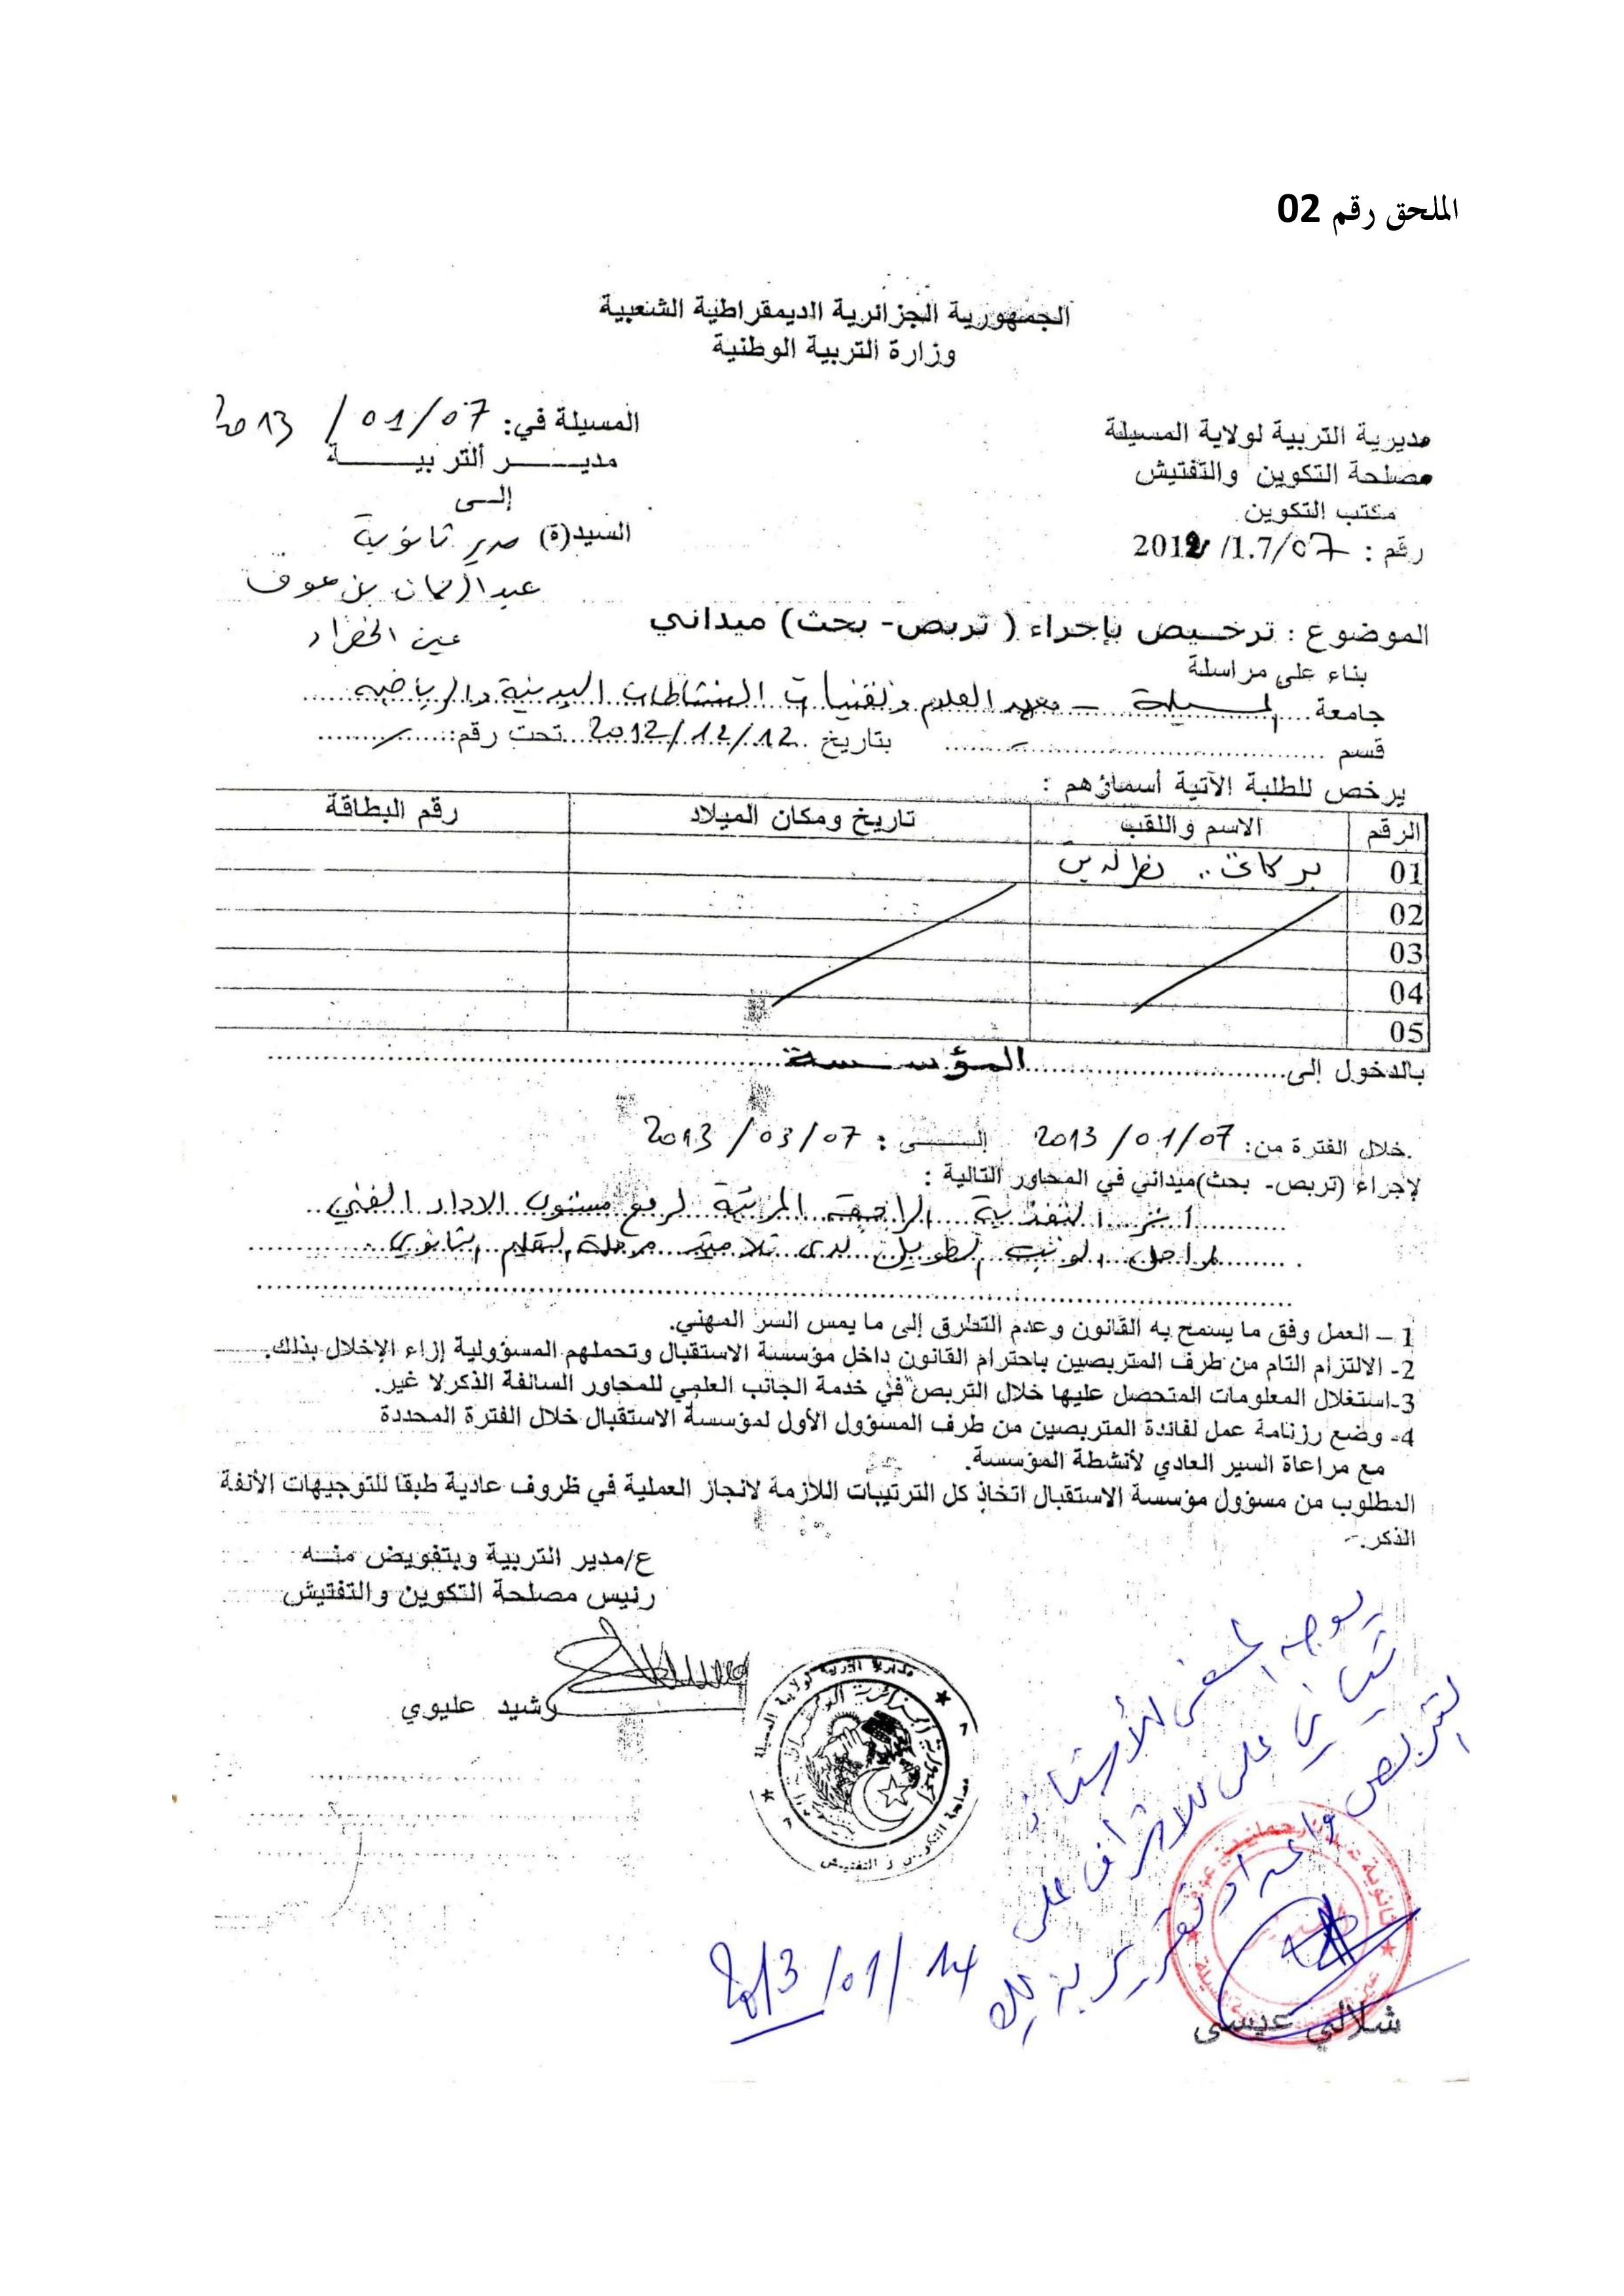 الملحق رقم 02
الجمهورية الجزائرية الديمقراطية الشعبية
وزارة التربية الوطنية
مديرية التربية لولاية المسيلة
مصلحة التكوين والتفتيش
مكتب التكوين
رقم : 07/1.7/ 2012
المسيلة في: 07/01/ 2013
مديـــر التربيـــة
إلـى
السيد(ة) مدير ثانوية
عبد الرحمان بن عوف
عين الخضراء
الموضوع : ترخـيص بإجراء ( تربص- بحث) ميداني
بناء على مراسلة
جامعة المسيلة – معهد العلوم وتقنيات النشاطات البدنية والرياضية
قسم ........ بتاريخ 12/12/2012 تحت رقم:........
يرخص للطلبة الآتية أسماؤهم :
الرقم الاسم واللقب تاريخ ومكان الميلاد رقم البطاقة
01 بركات نصر الدين
02
03
04
05
بالدخول إلى........المـؤسـسـة........
خلال الفترة من: 07/01/ 2013 إلــى : 07/03/ 2013
لإجراء (تربص- بحث)ميداني في المحاور التالية :
أثر التغذية الراجعة المرئية لرفع مستوى الاداء الفني
لمراحل الوثب الطويل لدى تلاميذ مرحلة التعليم الثانوي
1 – العمل وفق ما يسمح به القانون وعدم التطرق إلى ما يمس السر المهني.
2- الالتزام التام من طرف المتربصين باحترام القانون داخل مؤسسة الاستقبال وتحملهم المسؤولية إزاء الإخلال بذلك.
3-استغلال المعلومات المتحصل عليها خلال التربص في خدمة الجانب العلمي للمحاور السالفة الذكرلا غير.
4- وضع رزنامة عمل لفائدة المتربصين من طرف المسؤول الأول لمؤسسة الاستقبال خلال الفترة المحددة
مع مراعاة السير العادي لأنشطة المؤسسة.
المطلوب من مسؤول مؤسسة الاستقبال اتخاذ كل الترتيبات اللازمة لانجاز العملية في ظروف عادية طبقا للتوجيهات الأنفة
الذكر.-
ع/مدير التربية وبتفويض منــه
رئيس مصلحة التكوين والتفتيش
رشيد عليوي
مديرية التربية لولاية المسيلة
مصلحة التكوين و التفتيش
يوجه المعني للأستاذ
على للاشراف على
التربص واعداد تقرير بذلك
2013/01/14
شلالي عيسى